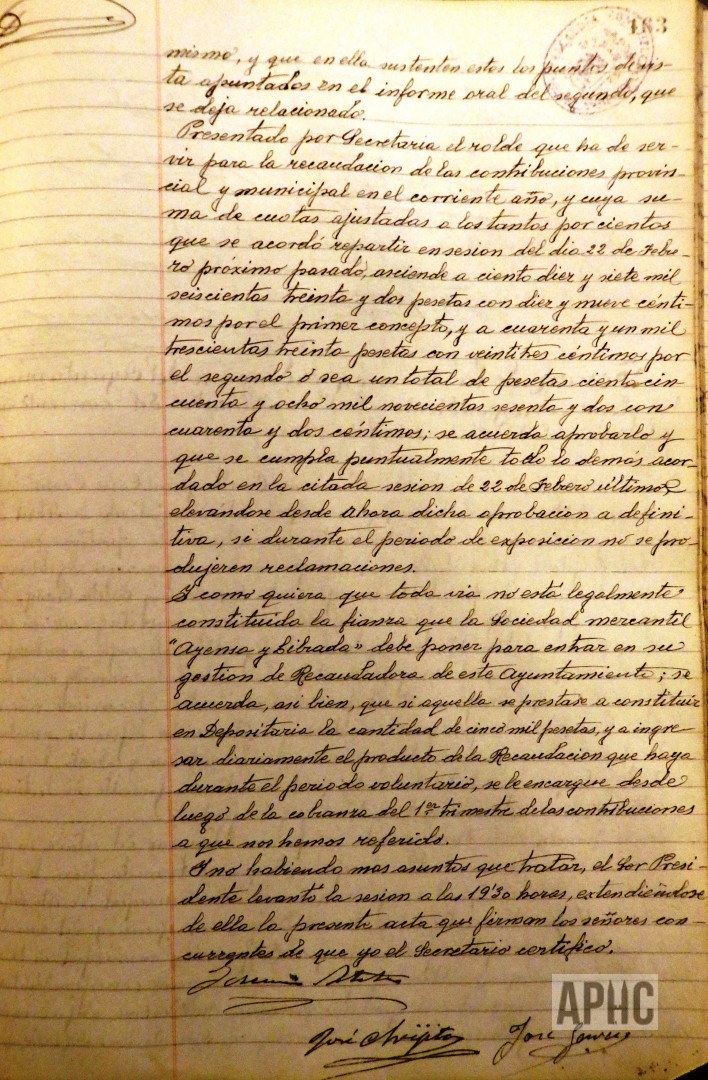 163
mismo, y que en ella sustenten estos los puntos de vis-
ta apuntados en el informe oral del segundo, que
se deja relacionado.
Presentado por Secretaria el rolde que ha de ser-
vir para la recaudacion de las contribuciones provin-
cial y municipal en el corriente año, y cuya su-
ma de cuotas ajustadas a los tantos por cientos
que se acordó repartir en sesion del dia 22 de Febre-
ro próximo pasado, asciende a ciento diez y siete mil
seiscientas treinta y dos pesetas con diez y nueve cénti-
mos por el primer concepto, y a cuarenta y un mil
trescientas treinta pesetas con veintitres céntimos por
el segundo o sea un total de pesetas ciento cin-
cuenta y ocho mil novecientas sesenta y dos con
cuarenta y dos céntimos; se acuerda aprobarlo y
que se cumpla puntualmente todo lo demás acor-
dado en la citada sesion de 22 de Febrero último,
elevandose desde ahora dicha aprobacion a defini-
tiva, si durante el periodo de exposicion no se pro-
dujeren reclamaciones.
Y como quiera que toda via no está legalmente
constituida la fianza que la Sociedad mercantil
"Ayensa y Librada" debe poner para entrar en su
gestion de Recaudadora de este Ayuntamiento; se
acuerda, asi bien, que si aquella se prestase a constituir
en Depositaria la cantidad de cinco mil pesetas, y a ingre-
sar diariamente el producto de la Recaudacion que haya
durante el periodo voluntario, se le encargue desde
luego de la cobranza del 1er trimestre de las contribuciones
a que nos hemos referido.
Y no habiendo mas asuntos que tratar, el Sor Presi-
dente levantó la sesion a las 19'30 horas, extendiéndose
de ella la presente acta que firman los señores con-
currentes de que yo el Secretario certifico.
José
José
APHC